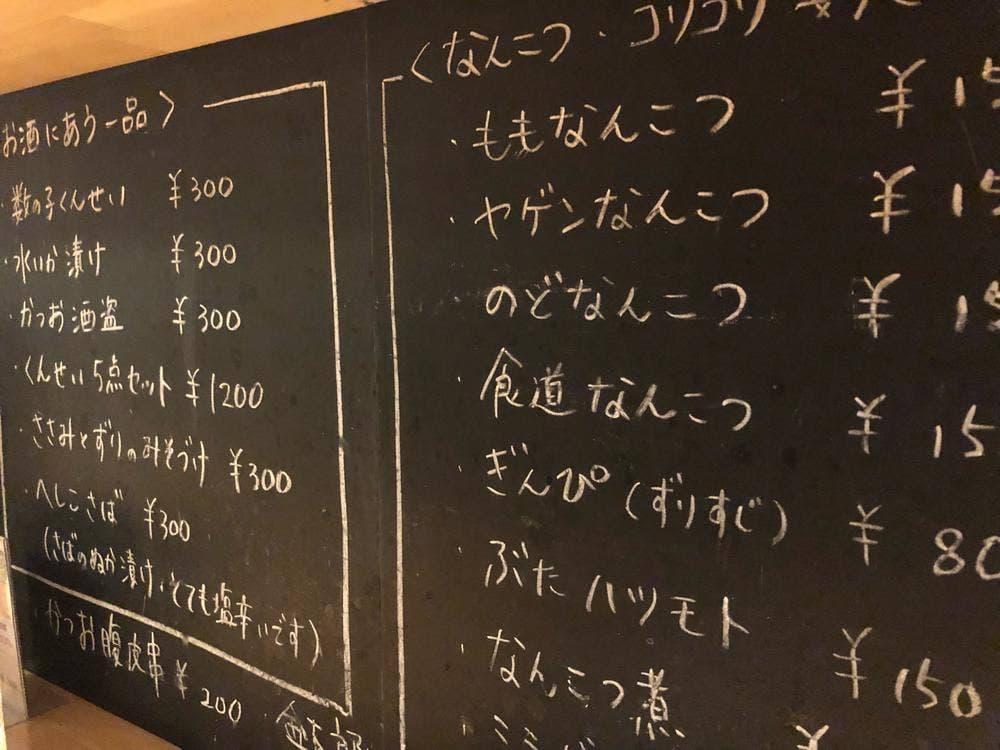 お酒にあう一品〉
・数の子くんせい ¥300
・水いか漬け ¥300
・かつお酒盗 ¥300
・くんせい5点セット ¥1200
・ささみとずりのみそづけ ¥300
・へしこさば ¥300
(さばのぬか漬け・とても塩辛いです)
・かつお腹皮串 ¥200
〈なんこつ・コリコリ
・ももなんこつ ¥15
・ヤゲンなんこつ ¥15
のどなんこつ ¥15
・食道なんこつ ¥15
・ぎんぴ(ずりすじ) ¥80
・ぶたハツモト
・なんこつ煮 ¥150